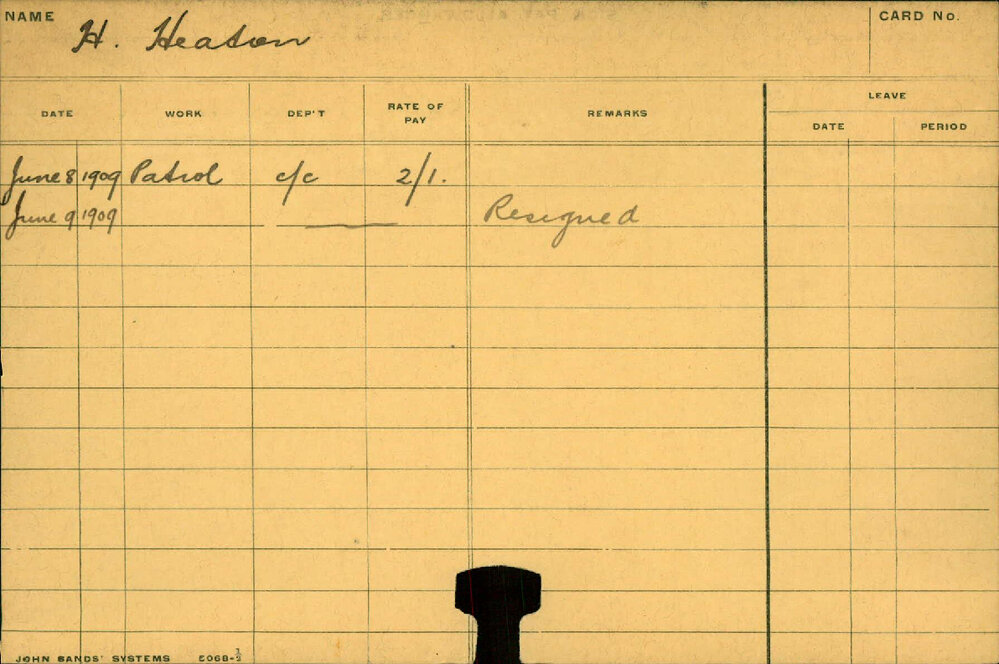 NAME H. Heaton CARD No.
LEAVE
DATE WORK DEP'T RATE OF PAY REMARKS DATE PERIOD
June 8 1909 Patrol c/c 2/1.
June 9 1909 Resigned
JOHN SANDS' SYSTEMS 5068-½